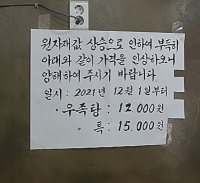 원자재값 상승으로 인하여 부득히
아래와 같이 가격을 인상하오니
양해하여 주시기 바랍니다
일시: 2021년 12월 1일부터
·우족탕: 12,000원
·특: 15,000원